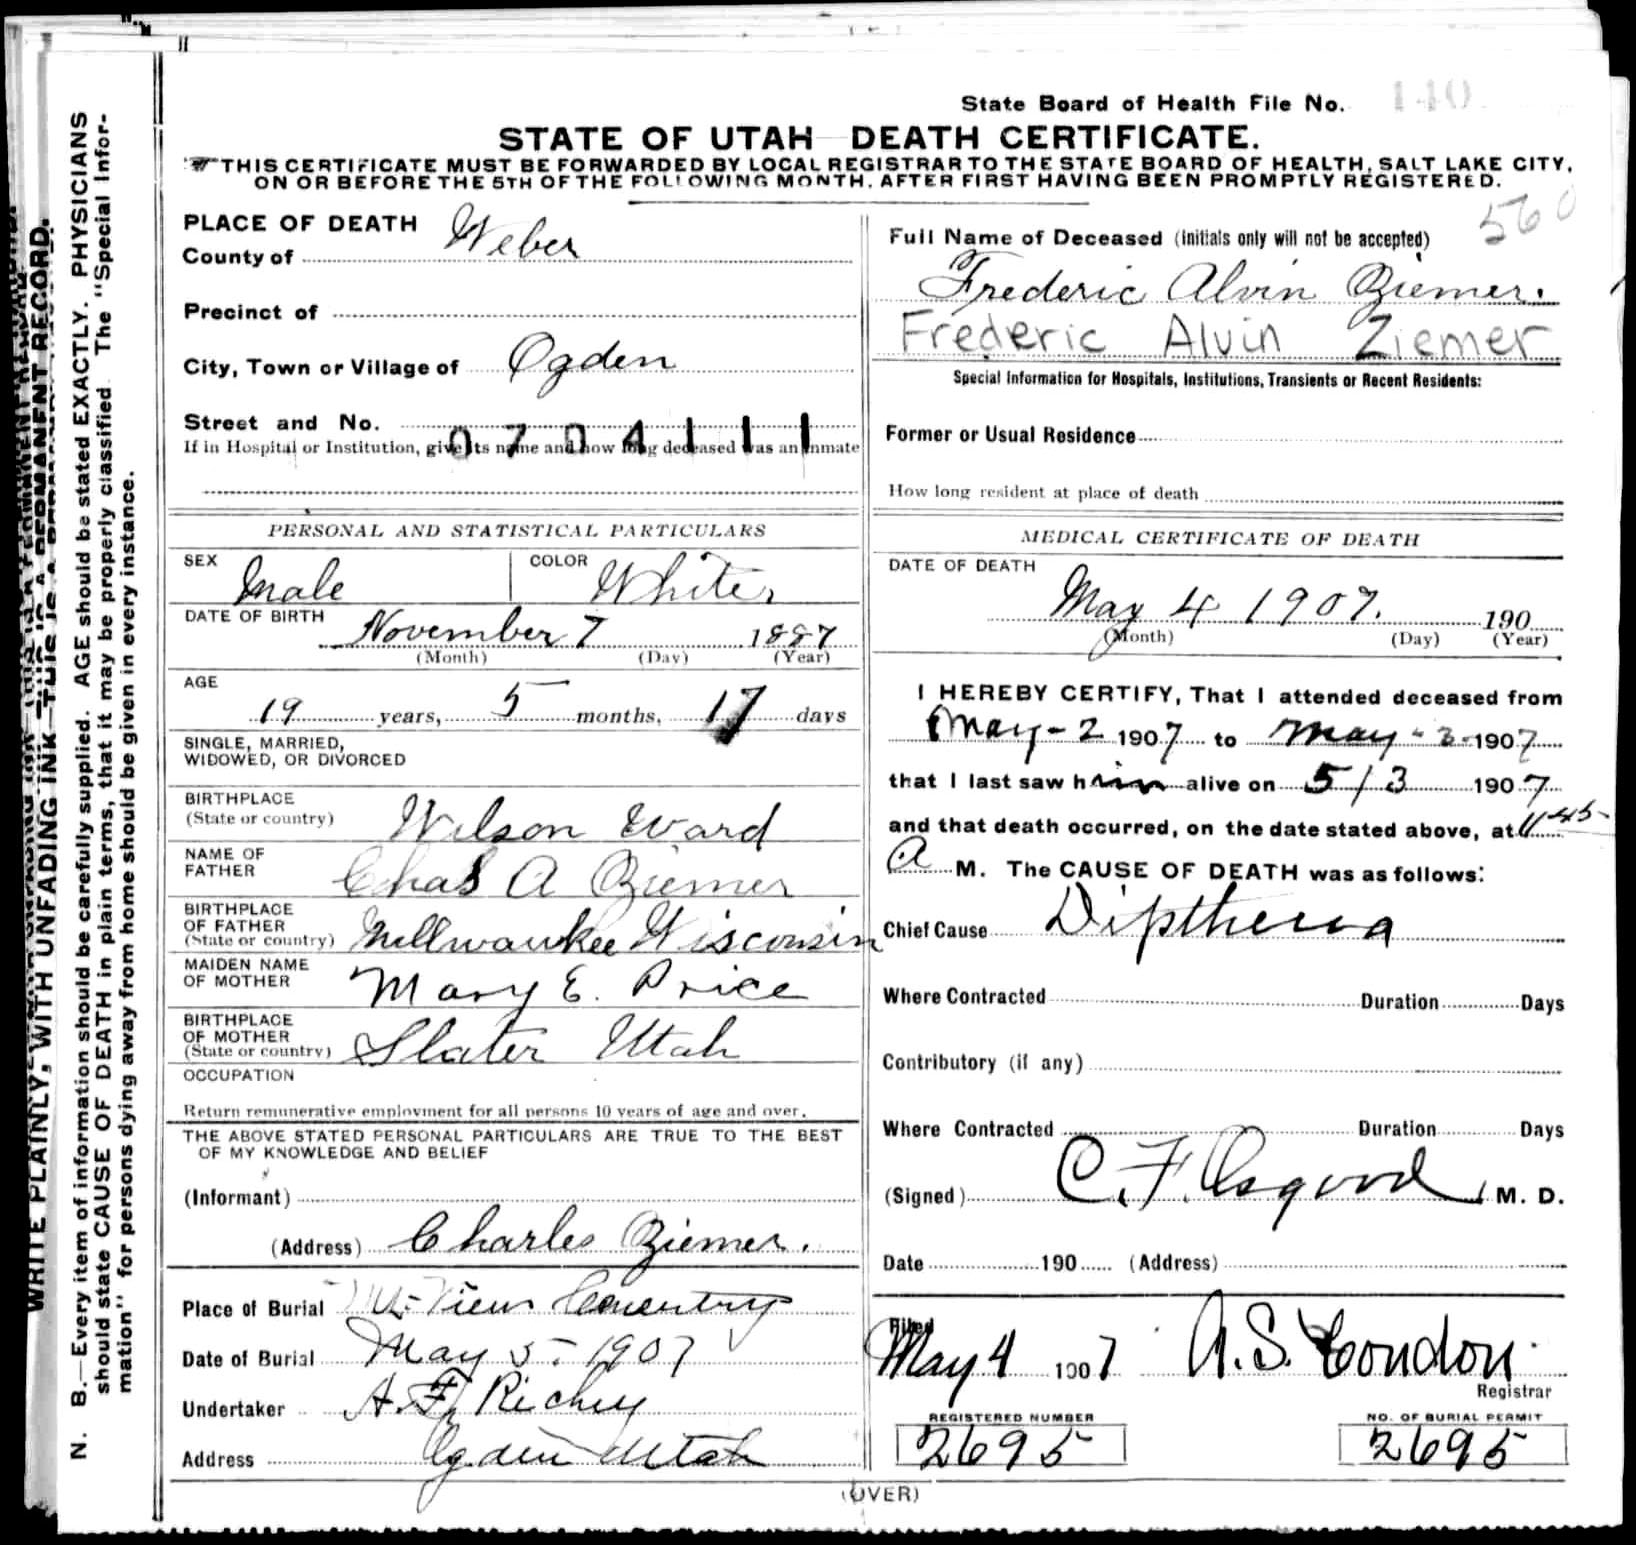 State Board of Health File No. 140
STATE OF UTAH DEATH CERTIFICATE.
THIS CERTIFICATE MUST BE FORWARDED BY LOCAL REGISTRAR TO THE STATE BOARD OF HEALTH, SALT LAKE CITY,
ON OR BEFORE THE 5TH OF THE FOLLOWING MONTH, AFTER FIRST HAVING BEEN PROMPTLY REGISTERED.
WRITE PLAINLY, WITH UNFADING INK—THIS IS A PERMANENT RECORD.
N. B.—Every item of information should be carefully supplied. AGE should be stated EXACTLY. PHYSICIANS
should state CAUSE OF DEATH in plain terms, that it may be properly classified. The "Special Infor-
mation" for persons dying away from home should be given in every instance.
PLACE OF DEATH
County of Weber
Precinct of
City, Town or Village of Ogden
Street and No.
0704111
If in Hospital or Institution, give its name and how long deceased was an inmate
PERSONAL AND STATISTICAL PARTICULARS
SEX Male COLOR White
DATE OF BIRTH November 7 1887
(Month) (Day) (Year)
AGE
19 years, 5 months, 17 days
SINGLE, MARRIED,
WIDOWED, OR DIVORCED
BIRTHPLACE
(State or country) Wilson Ward
NAME OF
FATHER Chas A Ziemer
BIRTHPLACE
OF FATHER
(State or country) Millwaukee Wisconsin
MAIDEN NAME
OF MOTHER Mary E. Price
BIRTHPLACE
OF MOTHER
(State or country) Slater Utah
OCCUPATION
Return remunerative employment for all persons 10 years of age and over.
THE ABOVE STATED PERSONAL PARTICULARS ARE TRUE TO THE BEST
OF MY KNOWLEDGE AND BELIEF
(Informant)
(Address) Charles Ziemer.
Place of Burial Mt. View Cementry
Date of Burial May 5. 1907
Undertaker A. F. Richey
Address Ogden Utah
560
Full Name of Deceased (Initials only will not be accepted)
Frederic Alvin Ziemer.
Frederic Alvin Ziemer
Special Information for Hospitals, Institutions, Transients or Recent Residents:
Former or Usual Residence
How long resident at place of death
MEDICAL CERTIFICATE OF DEATH
DATE OF DEATH
May 4 1907. 190
(Month) (Day) (Year)
I HEREBY CERTIFY, That I attended deceased from
May - 2 1907 to May - 3 - 1907
that I last saw him alive on 5/3 1907
and that death occurred, on the date stated above, at 11 45
A M. The CAUSE OF DEATH was as follows:
Chief Cause Diptheria
Where Contracted Duration Days
Contributory (if any)
Where Contracted Duration Days
(Signed) C. F. Osgood M. D.
Date 190 (Address)
Filed
May 4 1907 A. S. Condon
Registrar
REGISTERED NUMBER
2695
NO. OF BURIAL PERMIT
2695
(OVER)